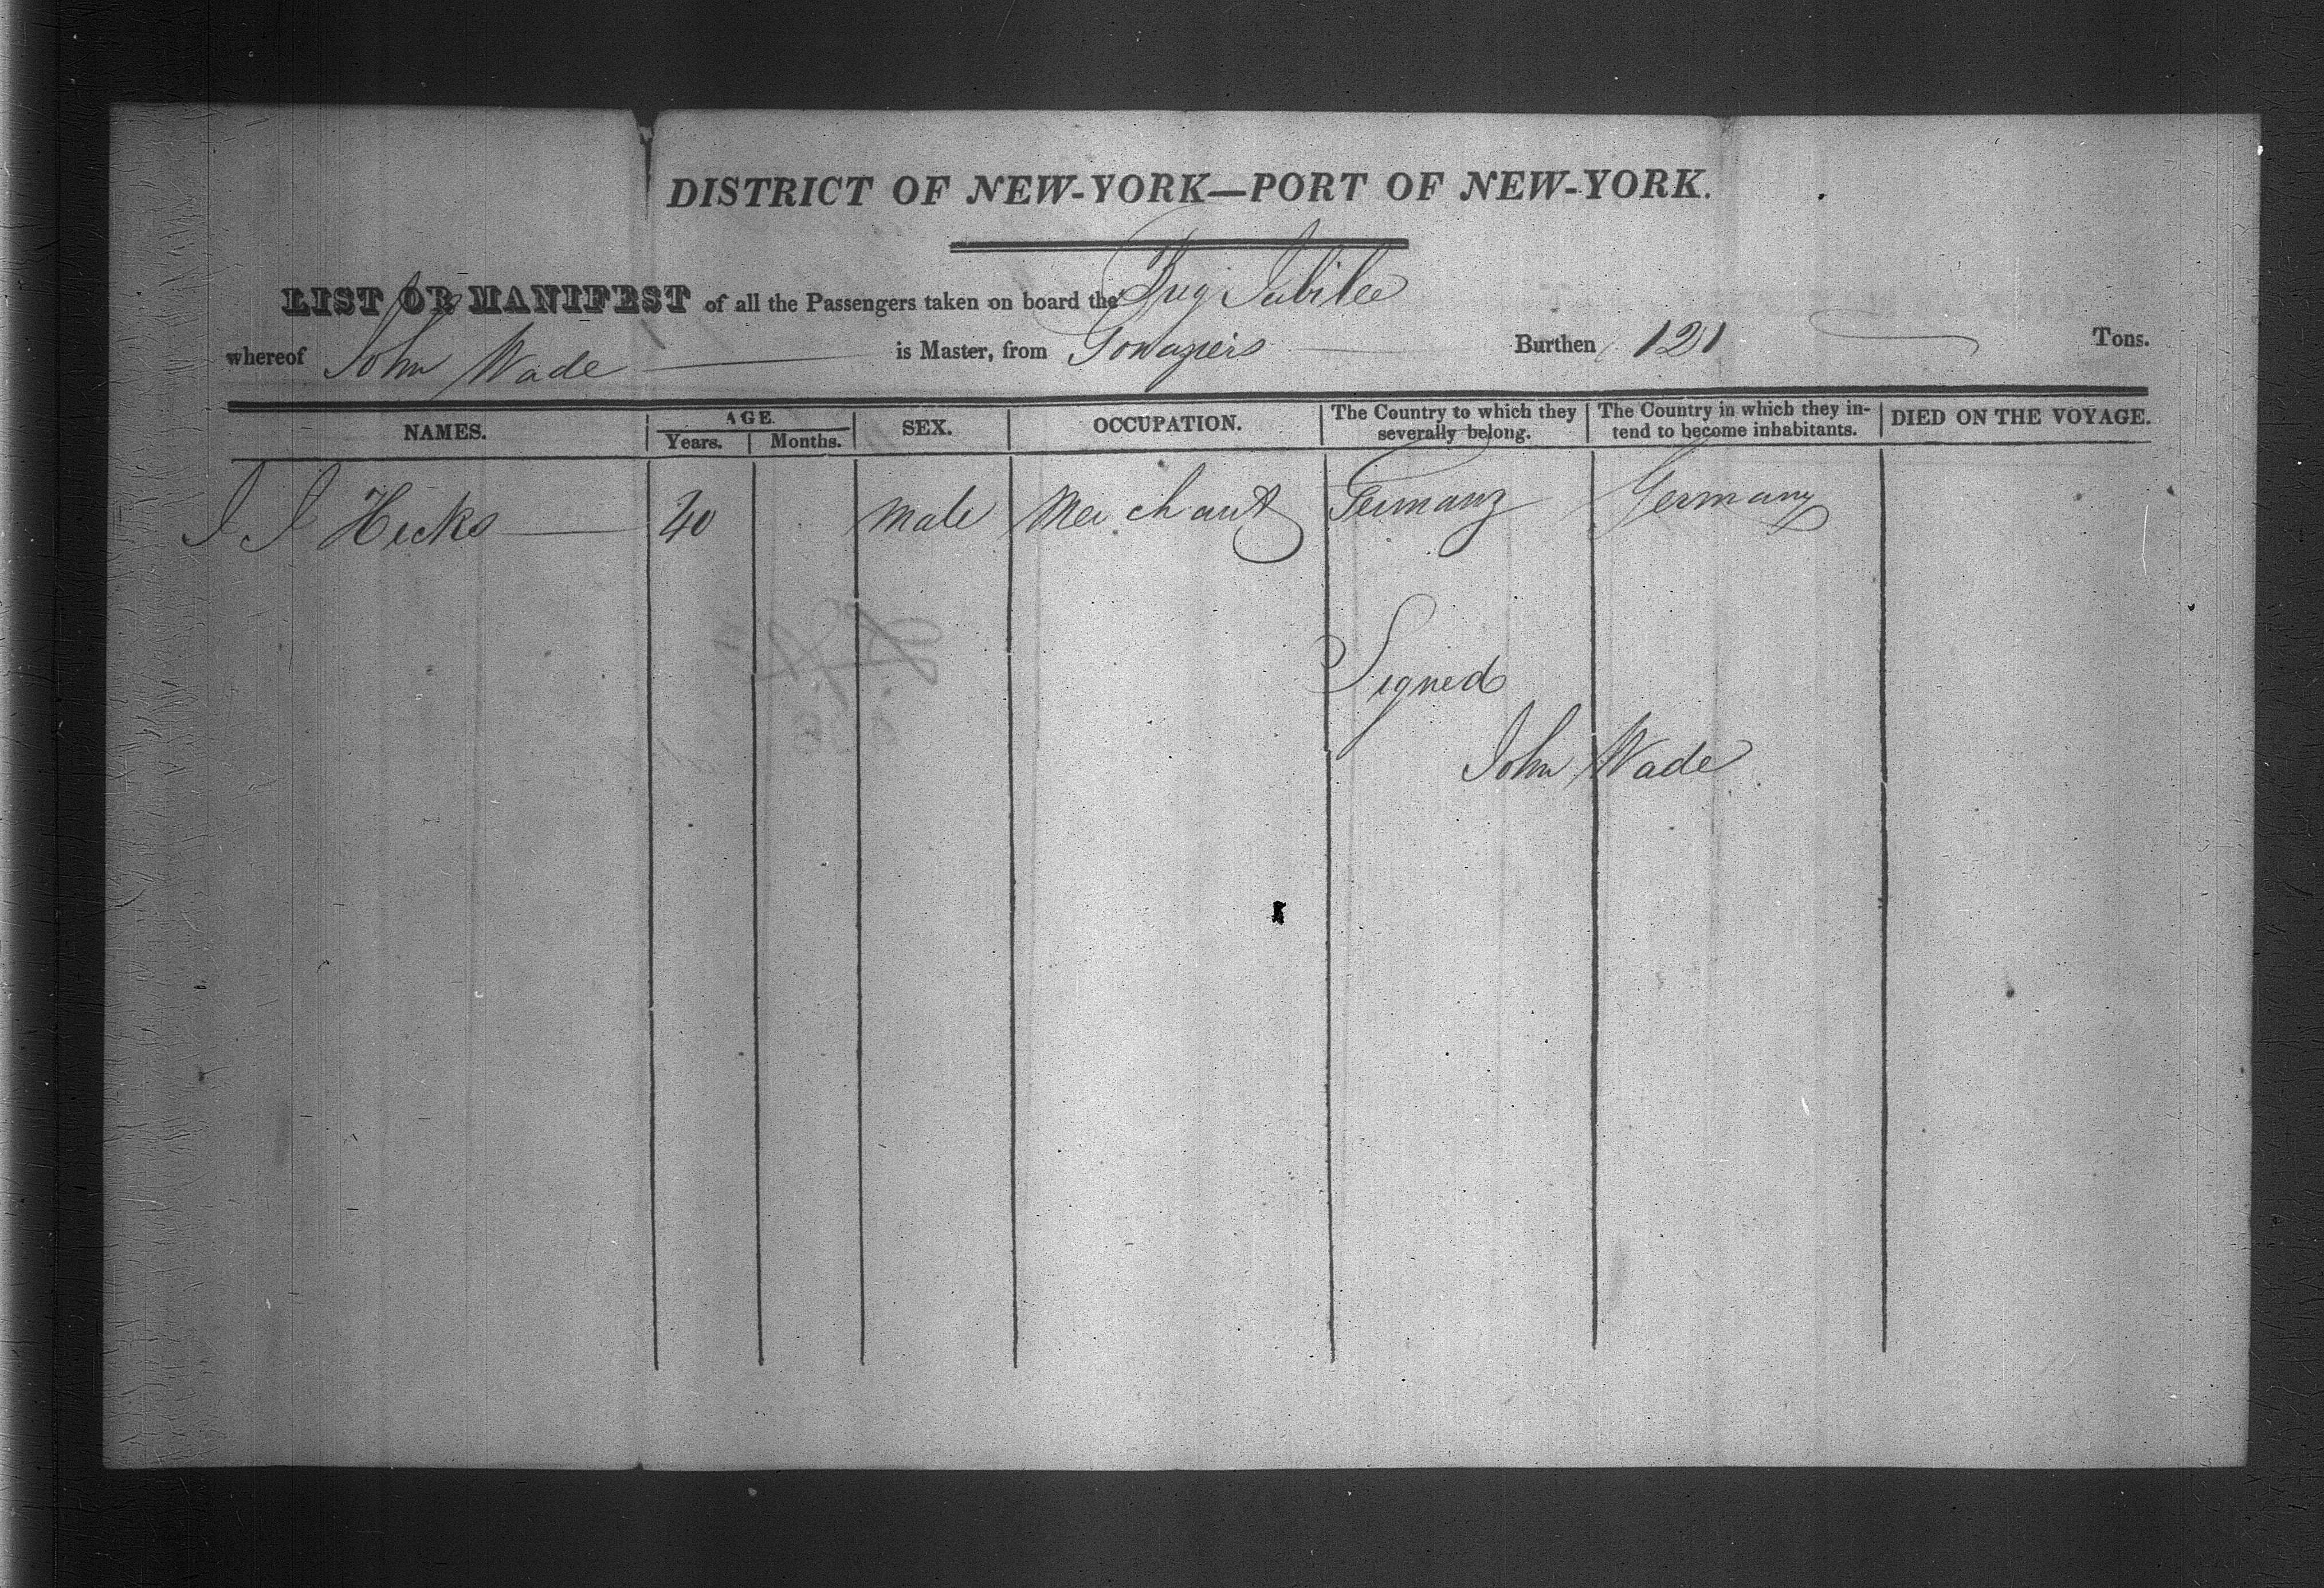 DISTRICT OF NEW-YORK—PORT OF NEW-YORK.
LIST OR MANIFEST of all the Passengers taken on board the Brig Jubilee
whereof John Wade is Master, from Gonaives Burthen 121 Tons.
NAMES. AGE. Years. Months. SEX. OCCUPATION. The Country to which they severally belong. The Country in which they intend to become inhabitants. DIED ON THE VOYAGE.
J J Hicks 40 male Merchant Germany Germany
Signed
John Wade